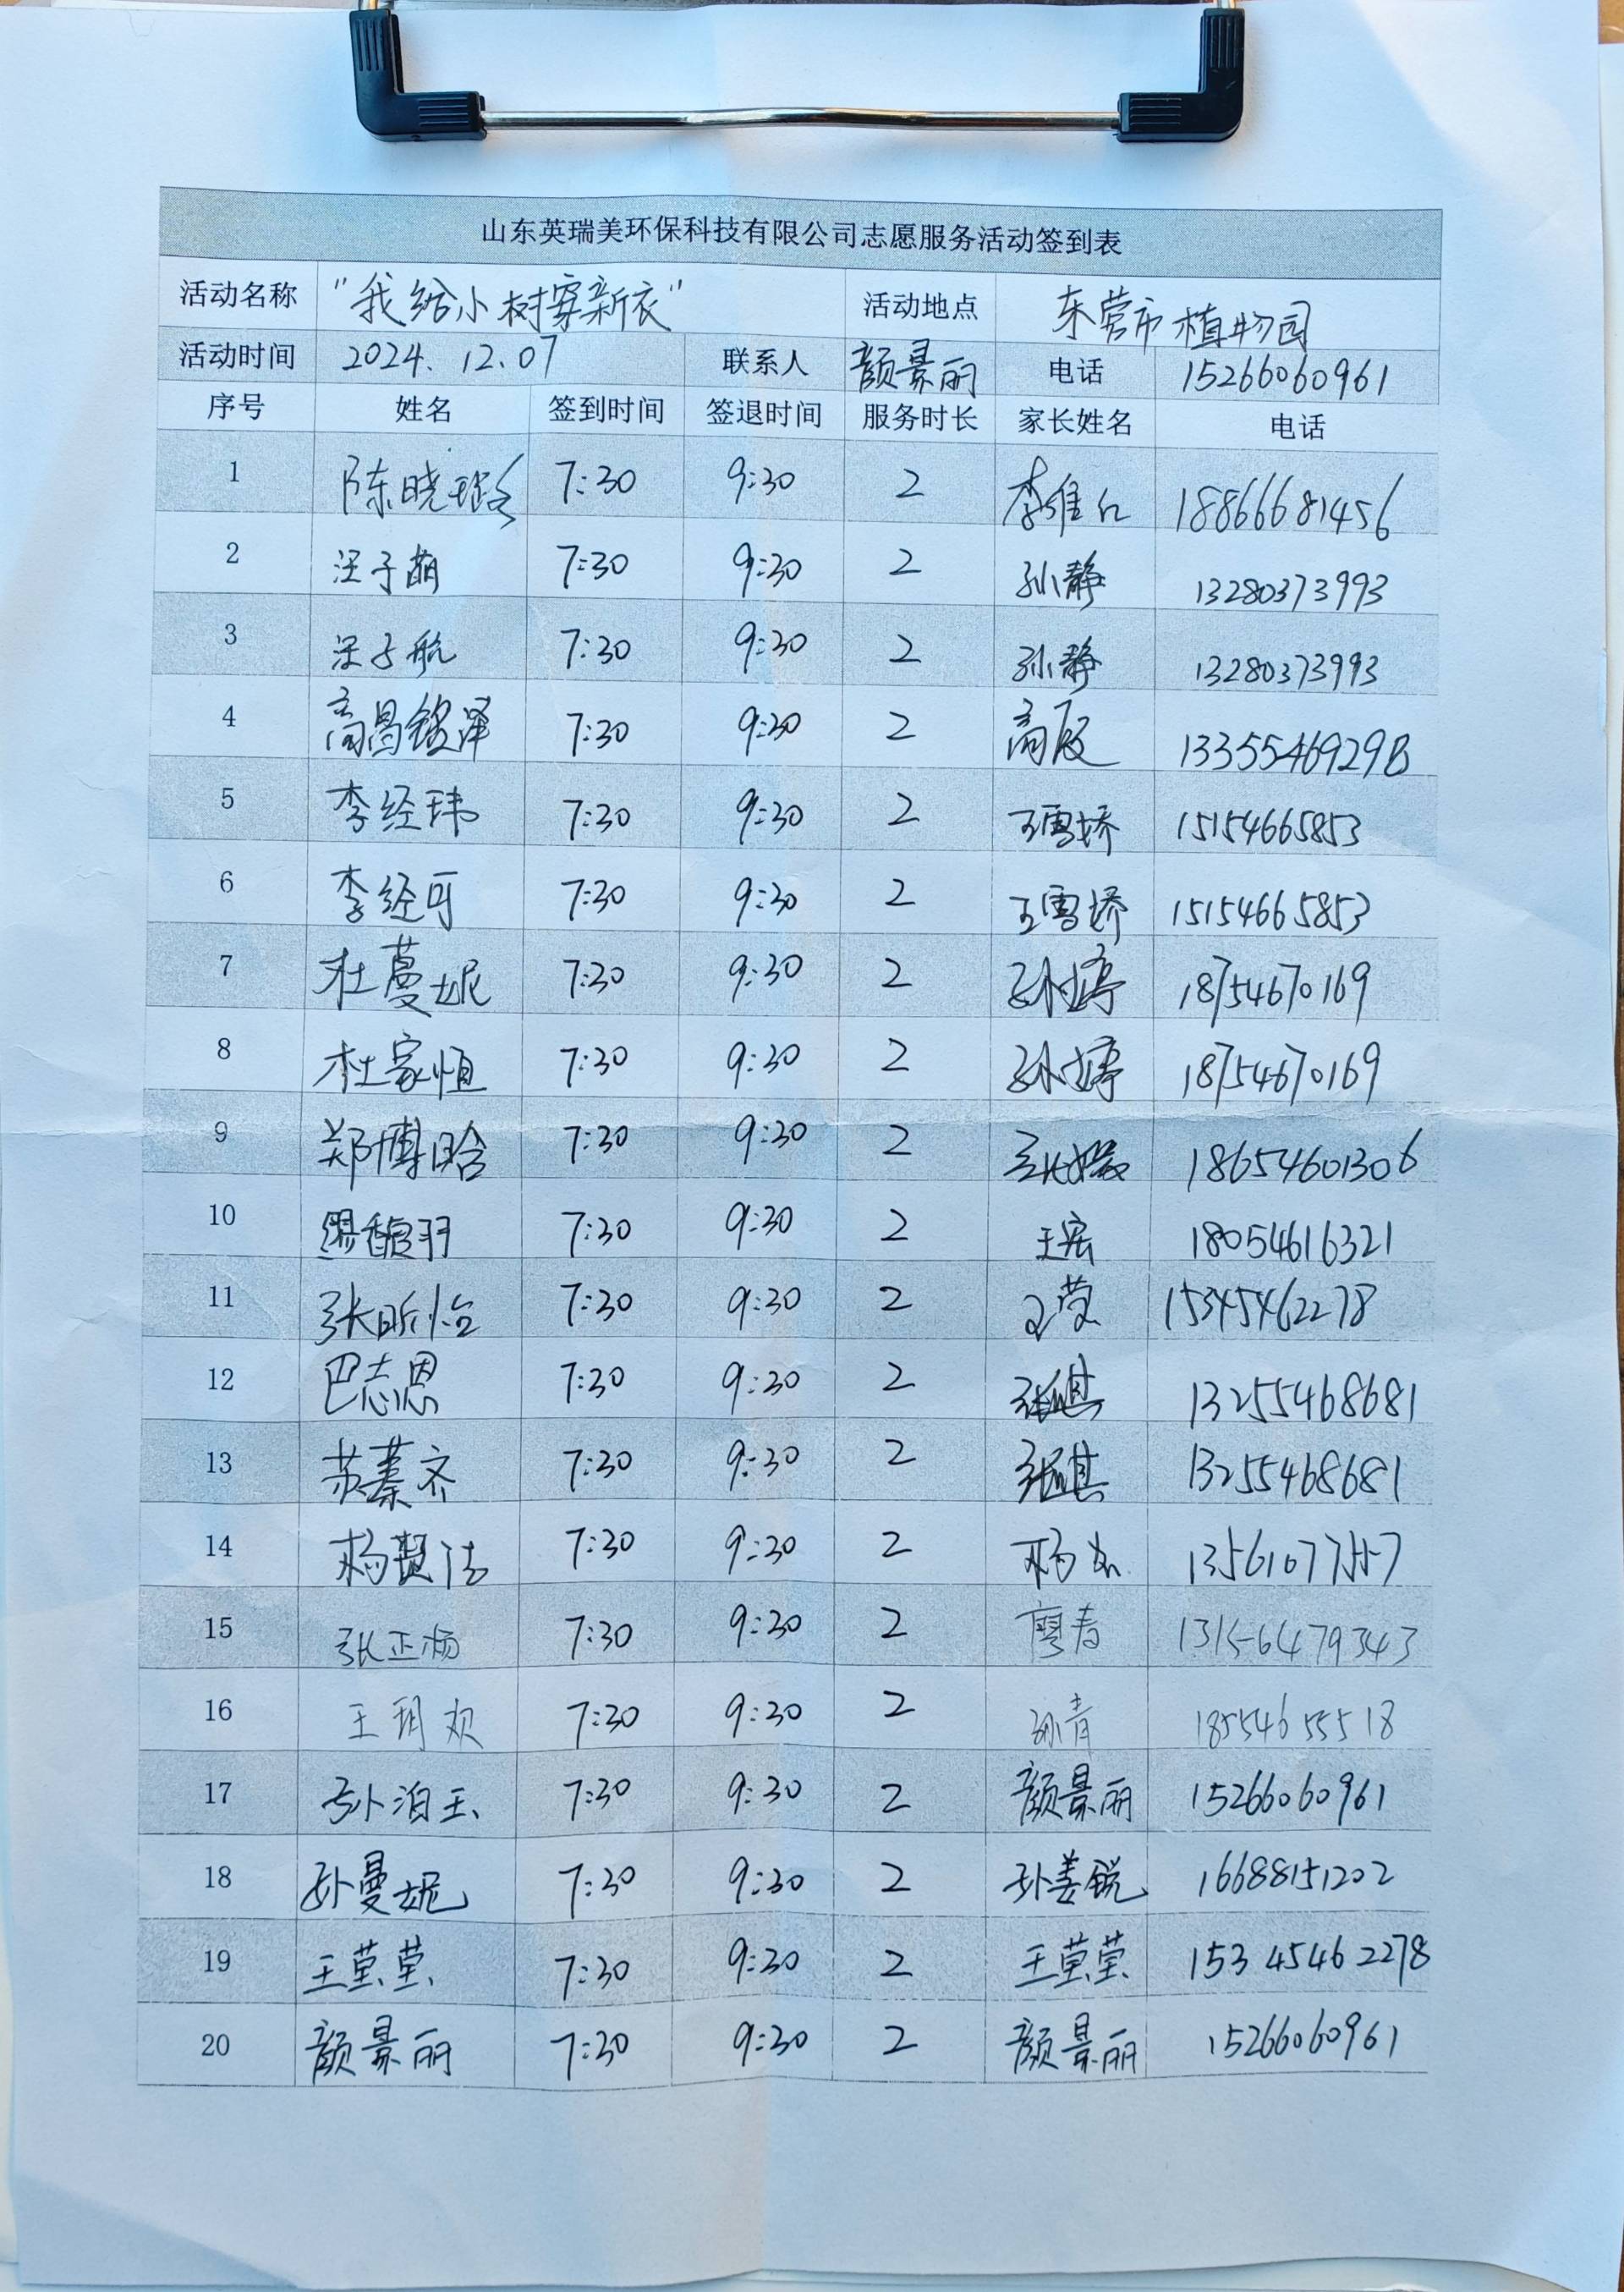 山东英瑞美环保科技有限公司志愿服务活动签到表
活动名称 "我给小树穿新衣" 活动地点 东营市植物园
活动时间 2024.12.07 联系人 颜景丽 电话 15266060961
序号 姓名 签到时间 签退时间 服务时长 家长姓名 电话
1 陈晓璐 7:30 9:30 2 李维红 18866681456
2 汪子萌 7:30 9:30 2 孙静 13280373993
3 汪子航 7:30 9:30 2 孙静 13280373993
4 高昌锬泽 7:30 9:30 2 高辰 1335546929
5 李经玮 7:30 9:30 2 王雪娇 15154665853
6 李经可 7:30 9:30 2 王雪娇 15154665853
7 杜蔓妮 7:30 9:30 2 孙婷 18754670169
8 杜家恒 7:30 9:30 2 孙婷 18754670169
9 郑博晗 7:30 9:30 2 18654601306
10 馥羽 7:30 9:30 2 王宏 18054616321
11 张昕怡 7:30 9:30 2 15345462278
12 巴志恩 7:30 9:30 2 13255468681
13 苏蓁齐 7:30 9:30 2 13255468681
14 杨贤法 7:30 9:30 2 杨 13561077557
15 张正杨 7:30 9:30 2 廖春 131564479343
16 王玥欢 7:30 9:30 2 孙青 18554655518
17 孙泊玉 7:30 9:30 2 颜景丽 15266060961
18 孙曼妮 7:30 9:30 2 孙姜锐 16688151202
19 王莹莹 7:30 9:30 2 王莹莹 15345462278
20 颜景丽 7:30 9:30 2 颜景丽 15266060961